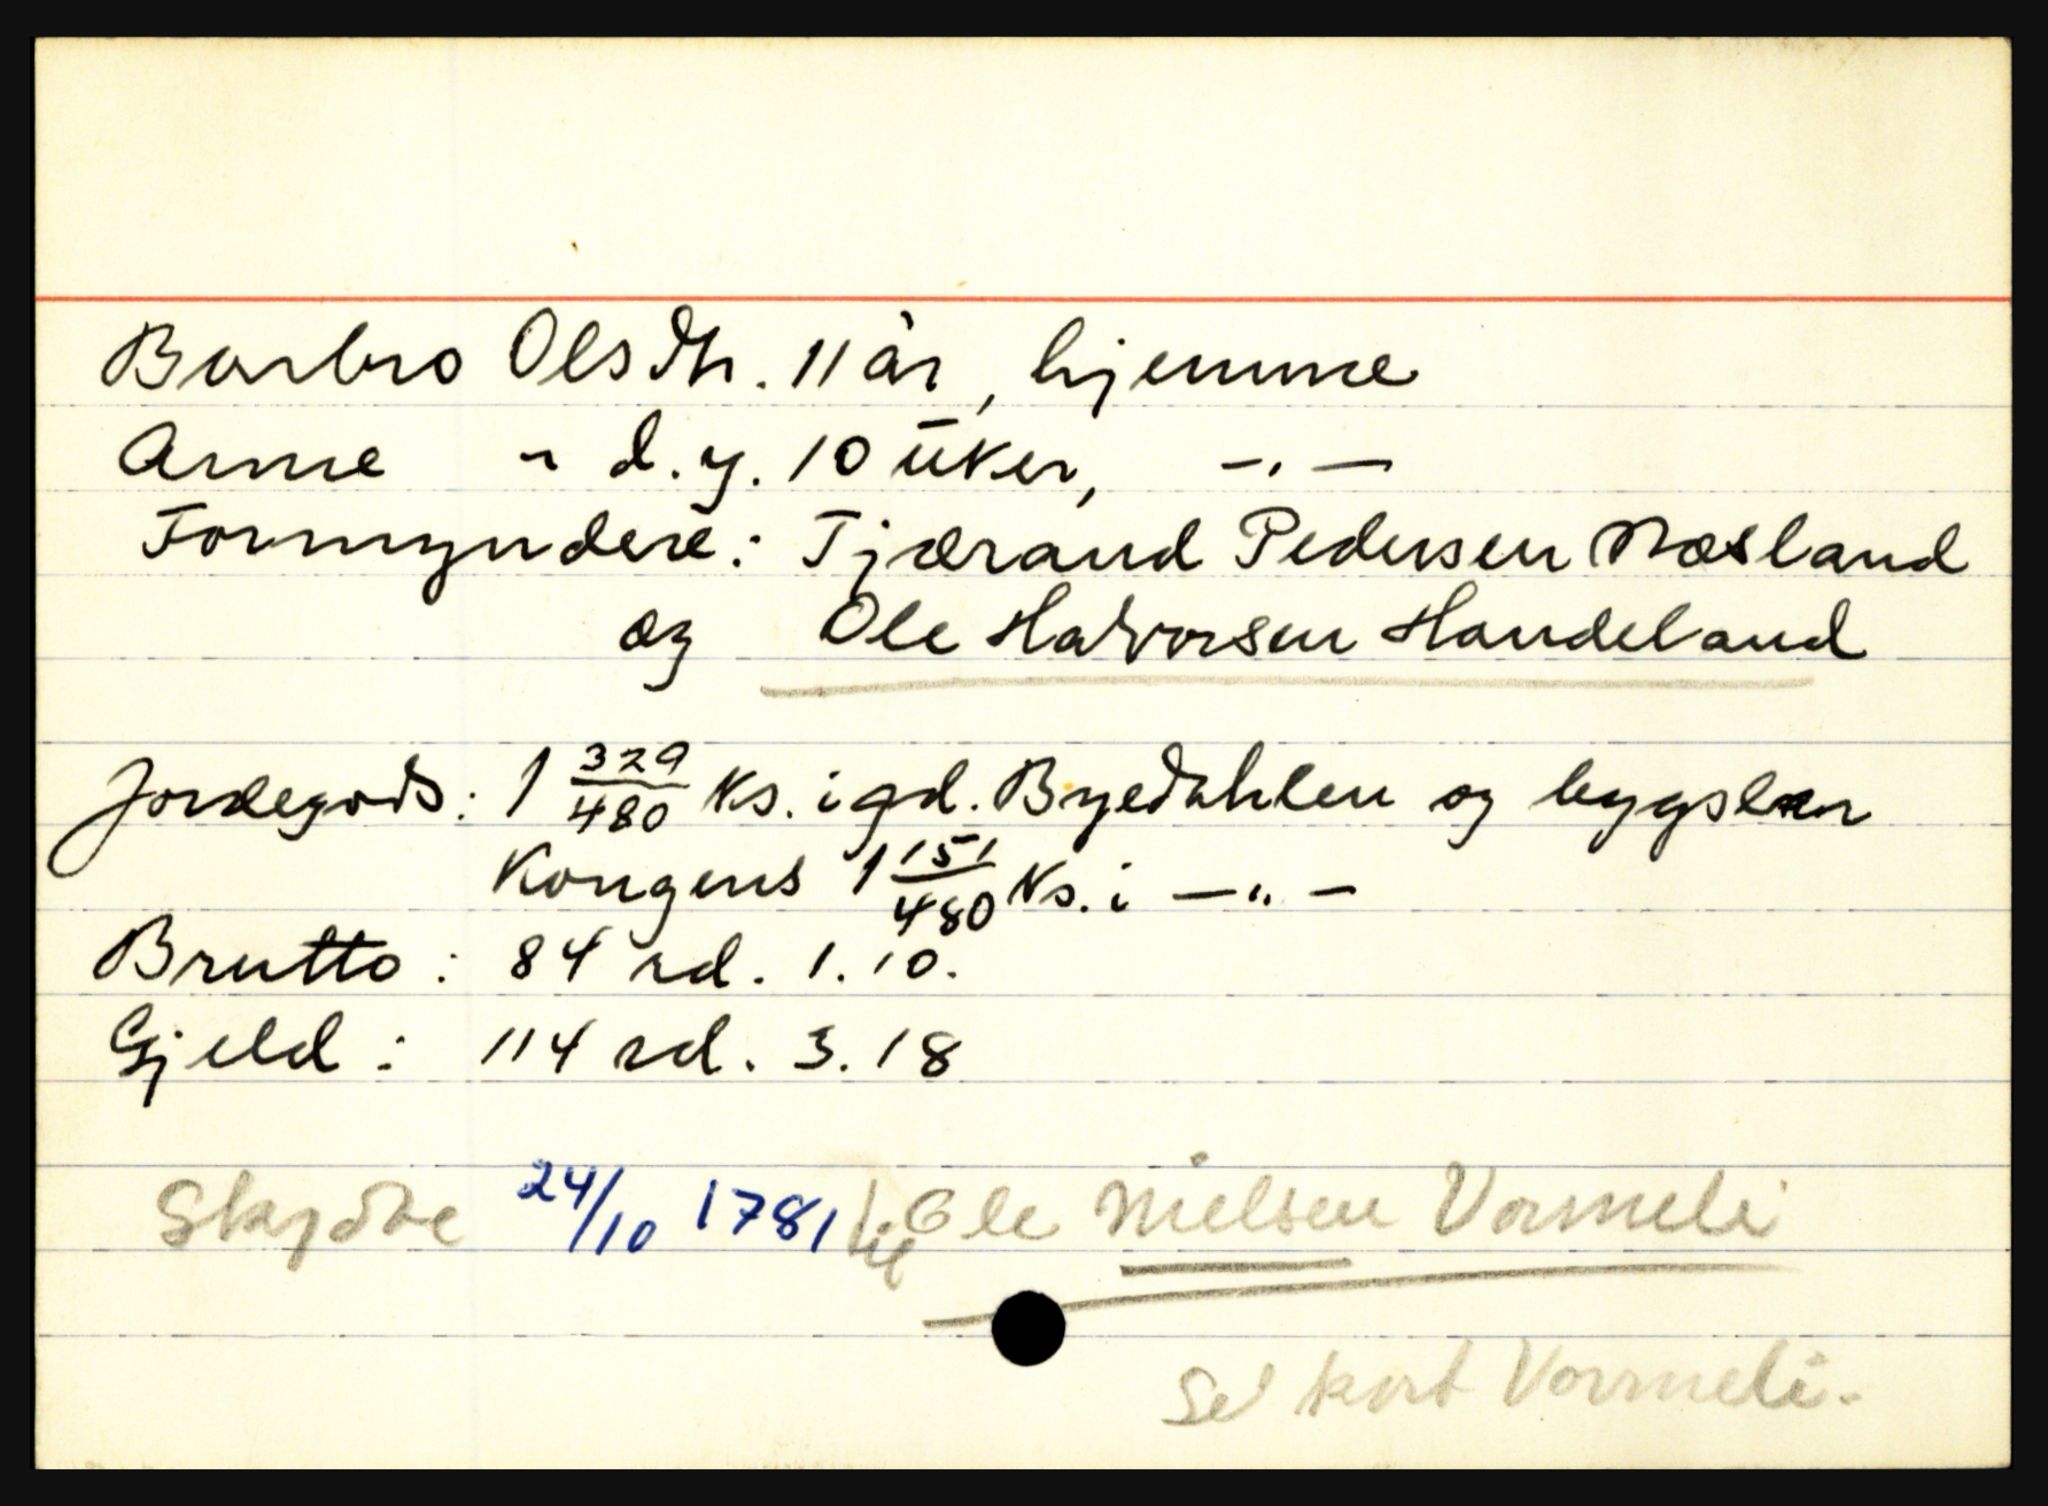 Barbro Olsdtr. 11 år, hjemme
Anne -"- d.y. 10 uker, -"-
Formyndere: Tjærand Pedersen Næsland
og Ole Halvorsen Handeland
Jordegods: 1 329/480 ks. i gd. Byedahlen og bygsler
Kongens 1 151/480 ks. i -"-
Brutto: 84 rd. 1.10.
Gjeld: 114 rd. 3.18
Skjøte 24/10 1781 til Ole Nielsen Vormeli
Se kort Vormeli.